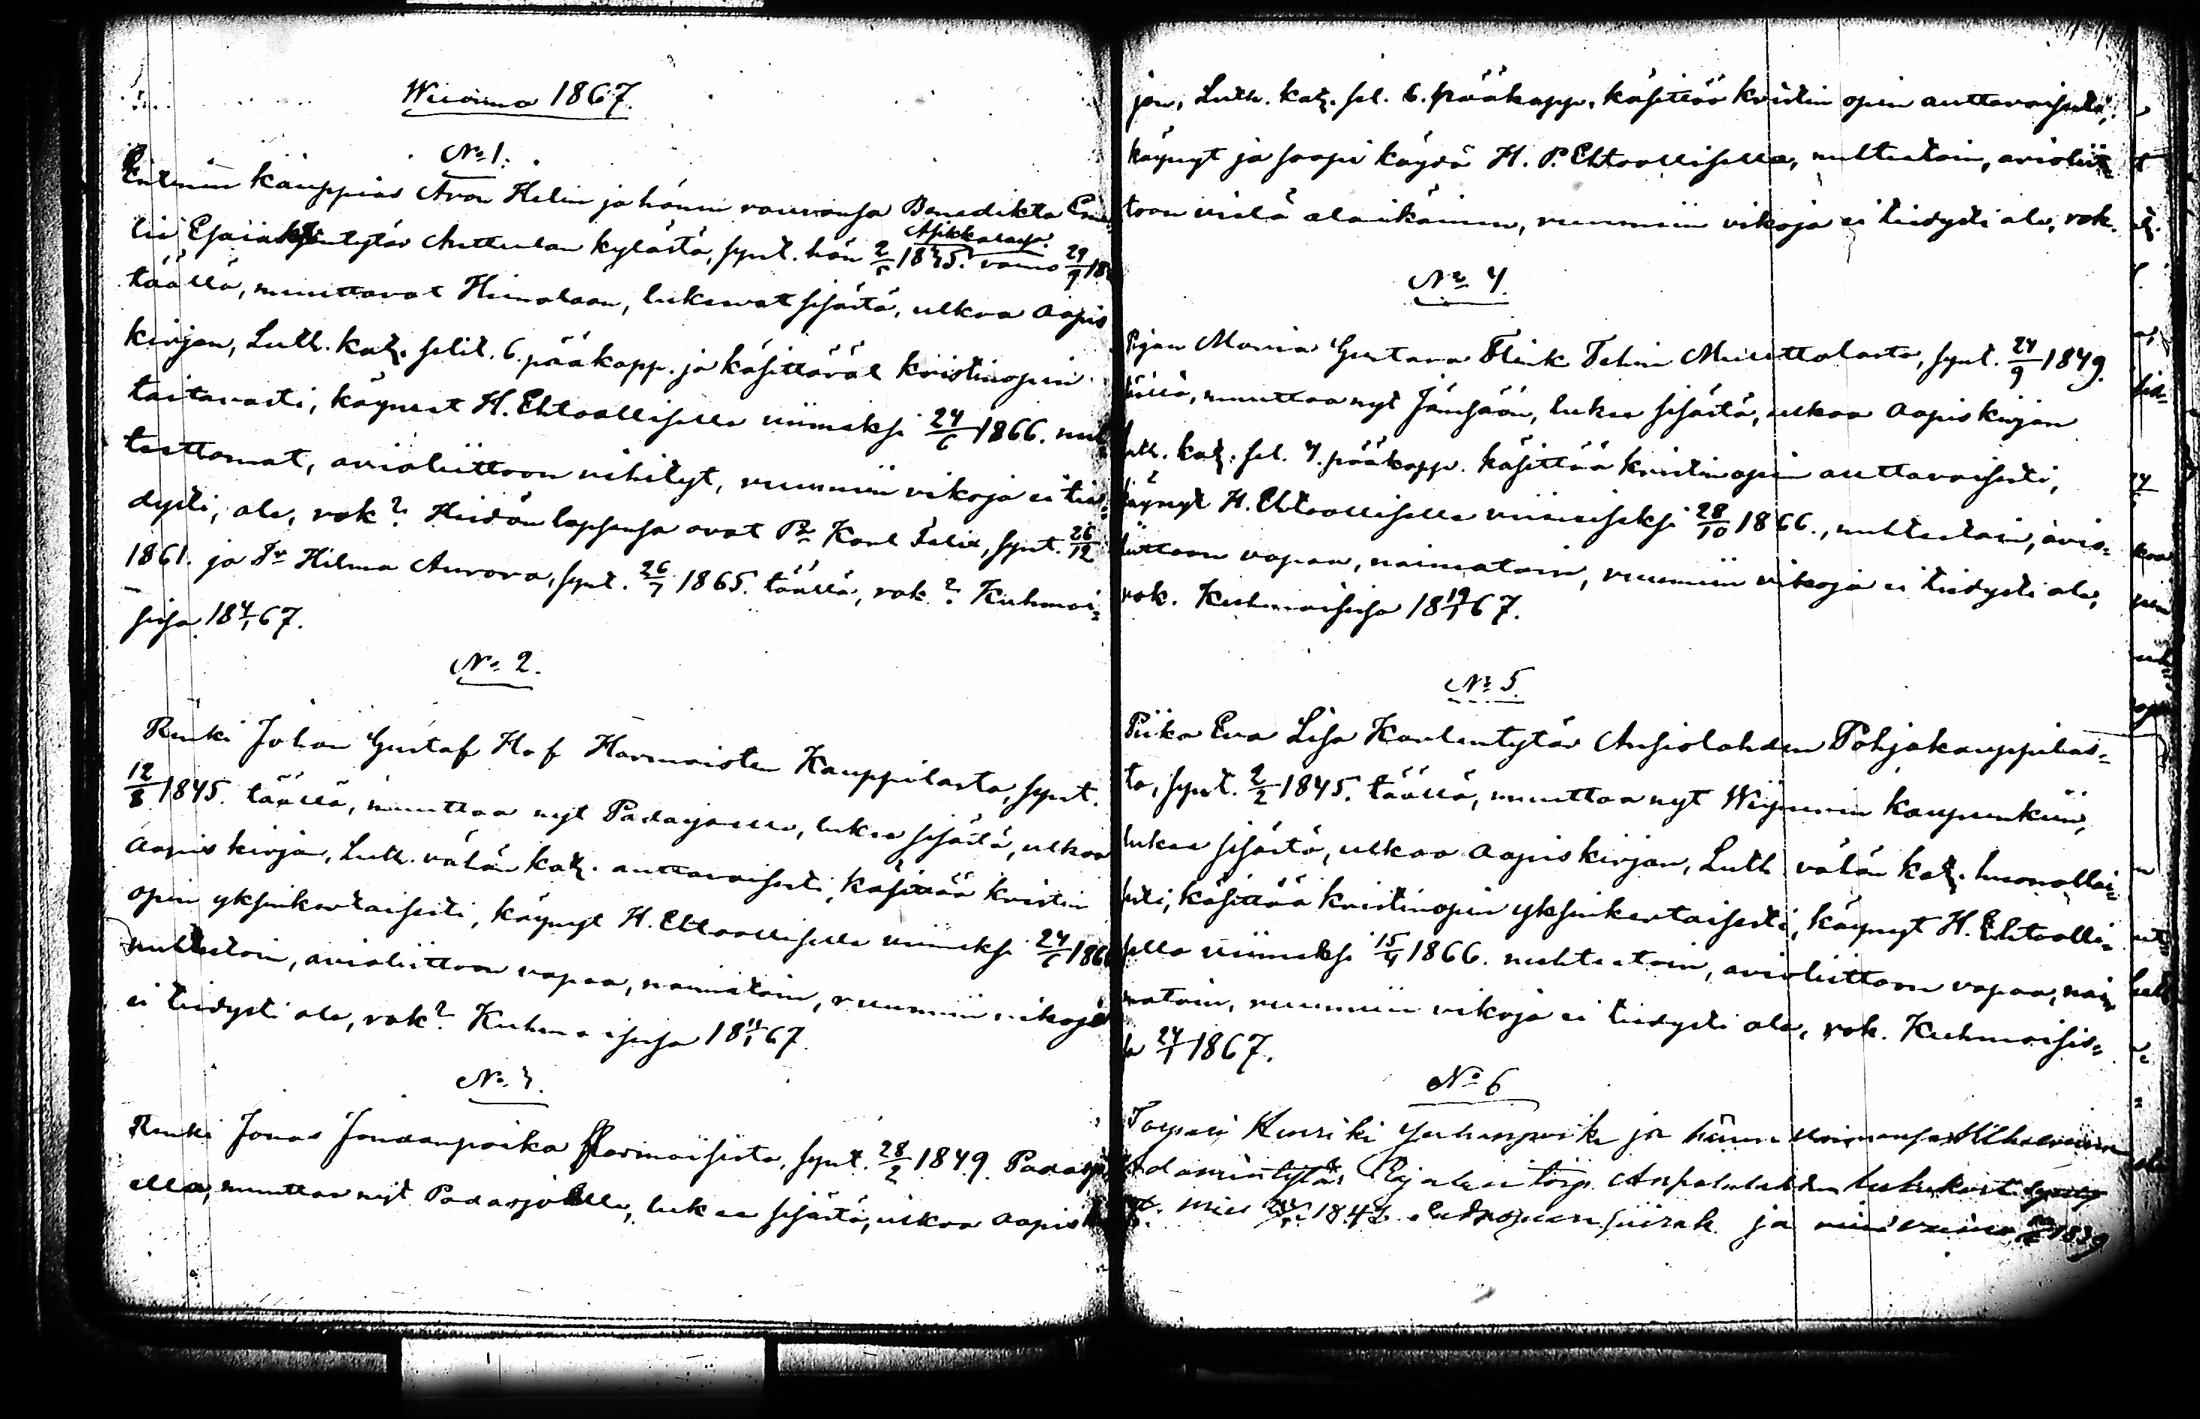 Wuonna 1867.
No 1.
Entinen kauppias Aron Helin ja hänen vaimonsa Benedikta Emi
lii Esaiaksentytär Anttulan kylästä, synt. hän 2/6 1835. Asikkalassa. vaimo 29/9 18
täällä, muuttavat Himolaan, lukevat sisästä, ulkoa aapis
kirjan, Luth. kat. selit. 6. pääkapp. ja käsittävät kristinopin
taitavasti, käyneet H. Ehtoollisella viimeksi 24/6 1866. nuh
teettomat, avioliittoon vihityt, ruumiin vikoja ei tie=
dysti, ole, rok? Heidän lapsensa ovat Pr Karl Felix, synt. 26/12
1861. ja Tr Hilma Aurora, synt. 26/7 1865. täällä, rok? Kuhmoi=
sissa 18 4/1 67.
No 2.
Renki Johan Gustaf Hof Harmoisten Kauppilasta, synt.
12/8 1845. täällä, muuttaa nyt Padasjoelle, lukee sisästä, ulkoa
aapis kirjan, Luth. vähän kat. auttavaisesti, käsittää kristin
opin yksinkertaisesti, käynyt H. Ehtoollisella viimeksi 24/6 1866
nuhteetoin, avioliittoon vapaa, naimatoin, ruumiin vikoja
ei tiedysti ole, rok? Kuhmoisissa 18 11/1 67.
No 3.
Renki Jonas Joudanpoika Harmoisista, synt. 28/2 1849. Padasjo
ella, muuttaa nyt Padasjoelle, lukee sisästä, ulkoa aapiski
jan, Luth. kat. sel. 6. pääkapp. käsittää kristin opin auttavaisesti,
käynyt ja saapi käydä H. P. Ehtoollisella, nuhteetoin, avioliit
toon vielä alaikäinen, ruumiin vikoja ei tiedysti ole, rok.
No 4.
Piian Maria Gustava Flink Tehin Muuttolasta, synt. 24/9 1849.
täällä, muuttaa nyt Jämsään, lukee sisästä, ulkoa aapiskirjan
Luth. kat. sel. 4. pääkapp. käsittää kristinopin auttavaisesti,
käynyt H. Ehtoollisella viimeiseksi 28/10 1866., nuhteetoin, avio=
liittoon vapaa, naimatoin, ruumiin vikoja ei tiedysti ole,
rok. Kuhmoisissa 18 19/1 67.
No 5.
Piika Eva Lisa Kaarlentytär Ansiolahden Pohjakauppilas=
ta, synt. 2/2 1845. täällä, muuttaa nyt Wiipurin kaupunkiin,
lukee sisästä, ulkoa aapiskirjan, Luth vähän kat. luonnollai=
sesti, käsittää kristinopin yksinkertaisesti, käynyt H. Ehtoolli=
sella viimeksi 15/4 1866. nuhteetoin, avioliittoon vapaa, nai
matoin, ruumiin vikoja ei tiedysti ole, rok. Kuhmoisis=
sa 24/1 1867.
No 6
Torpari Henriki Juhanpoika ja hänen vaimonsa
ja
1839